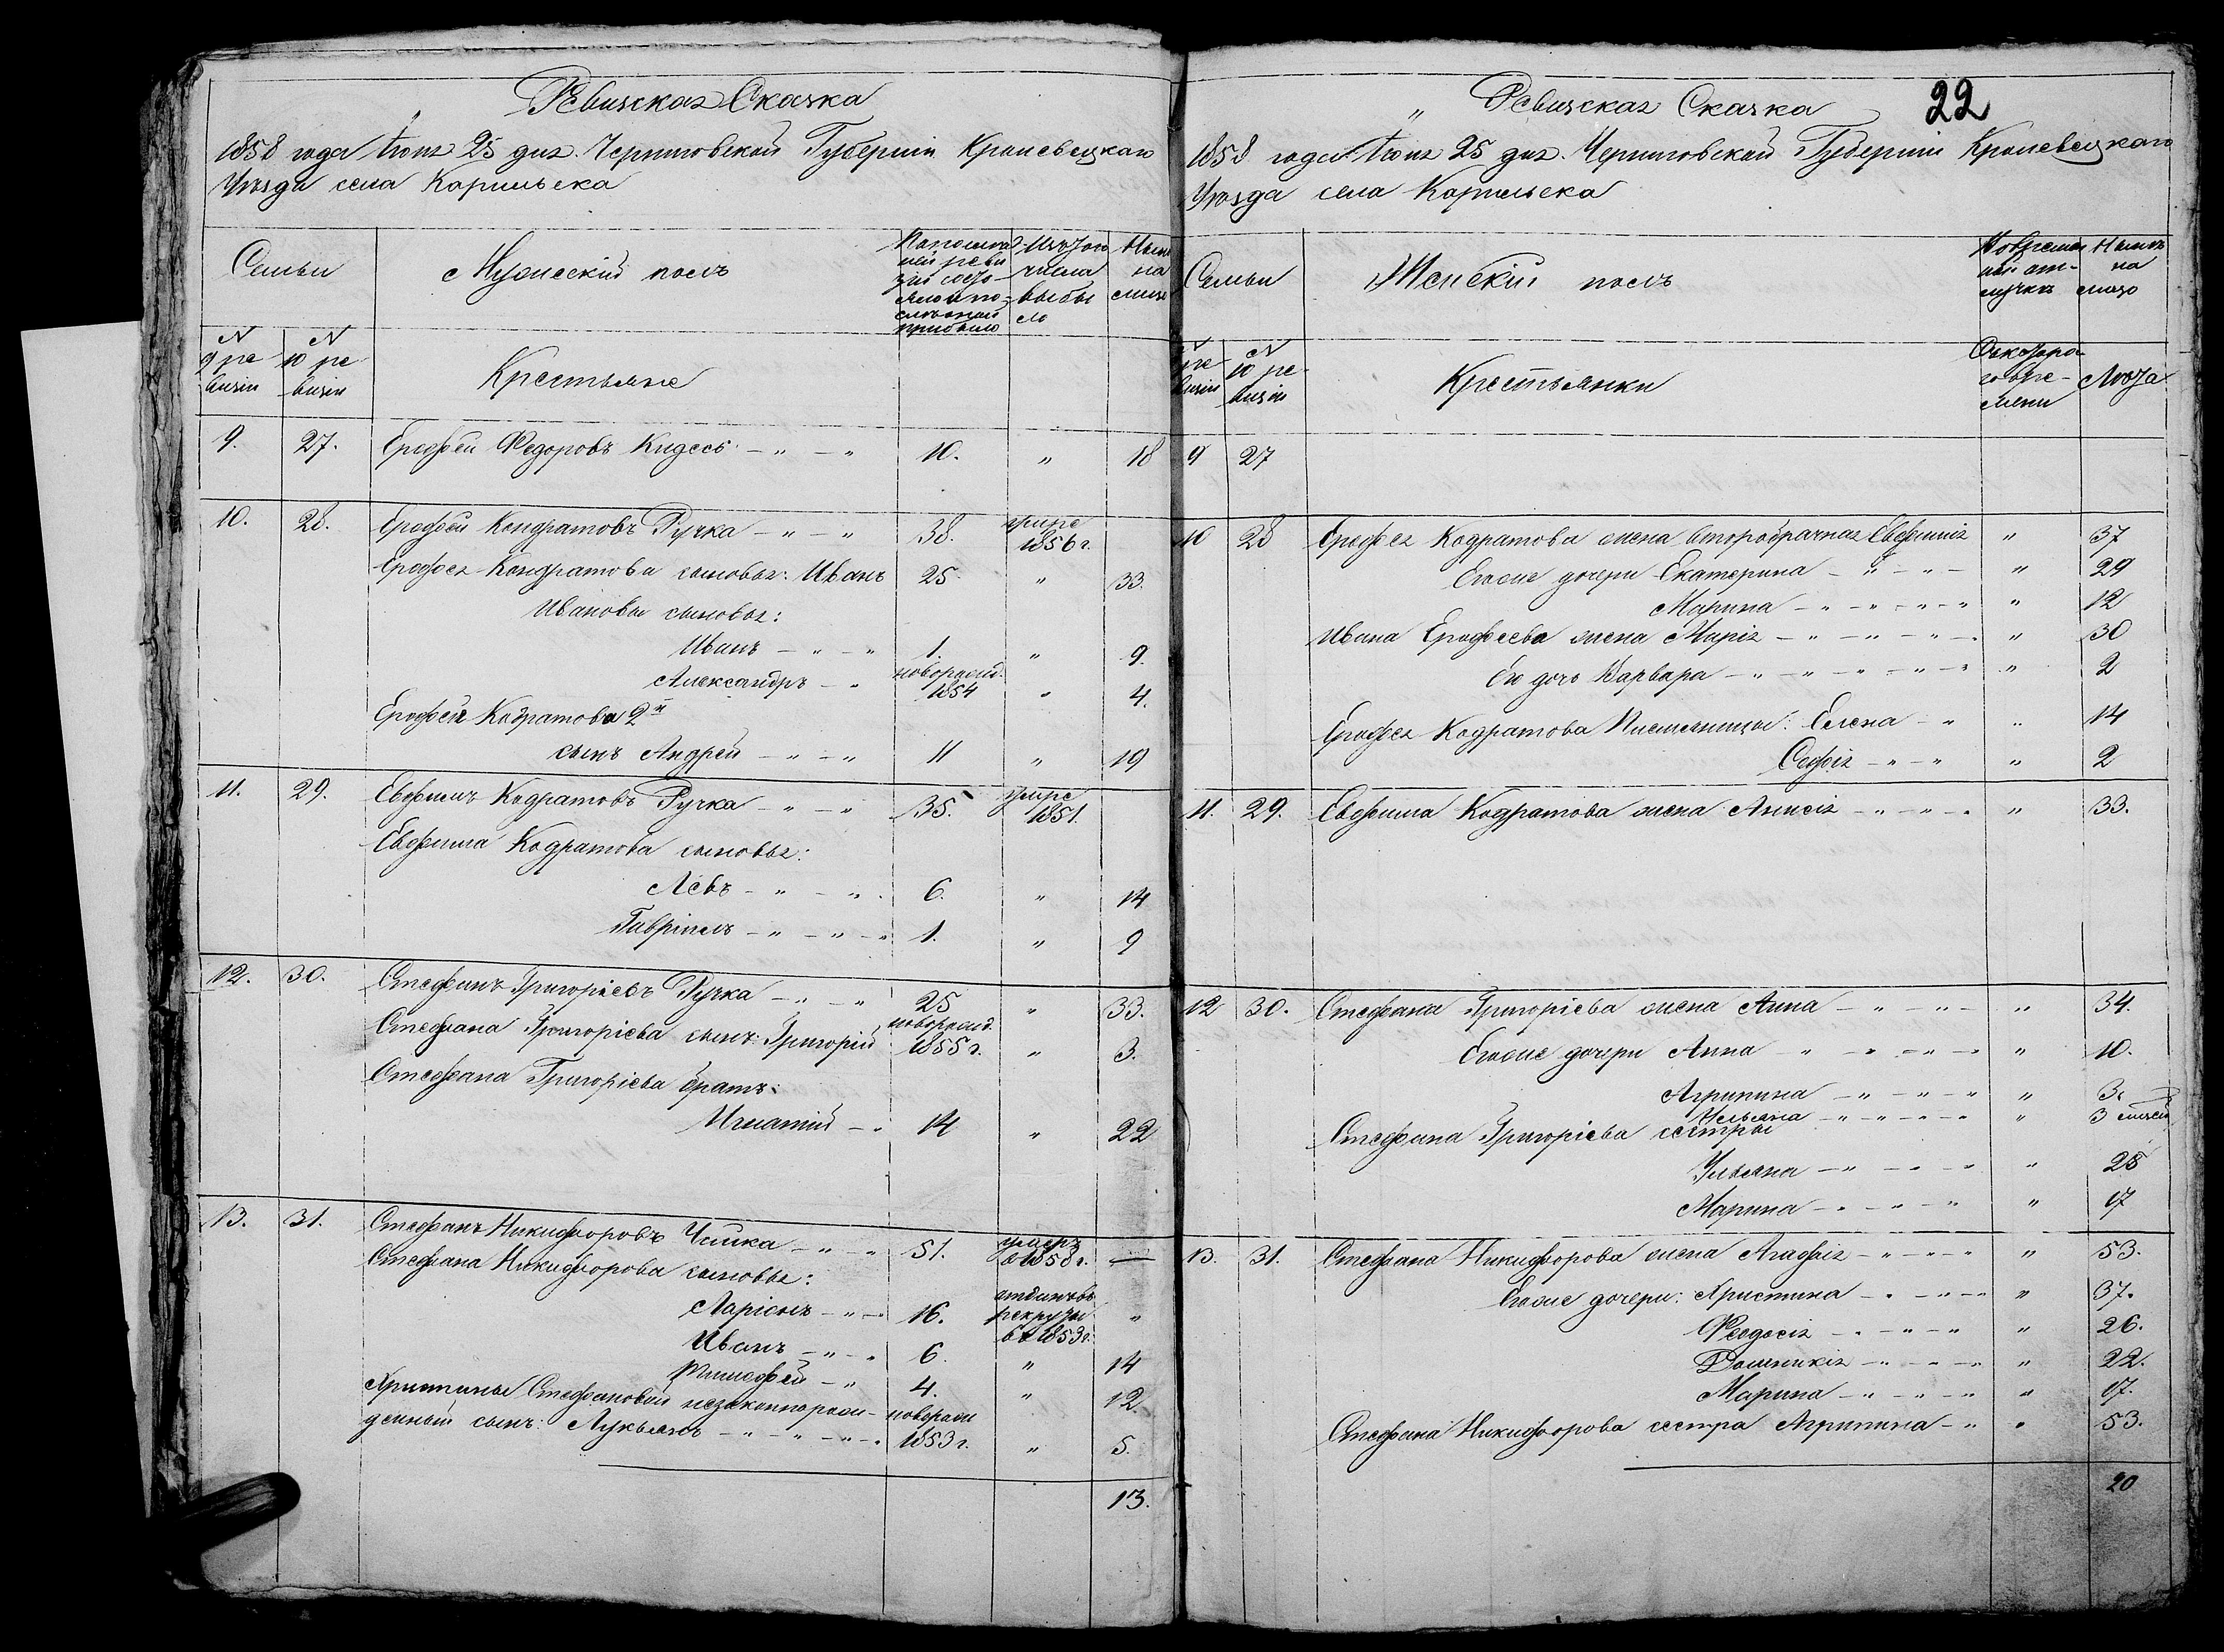 Ревизская Сказка
1858 года Іюня 25 дня. Черниговской Губерніи Кролевецкаго
Уѣзда села Карильска
Семьи
Мужескій полъ
По послѣд
ней реви
зіи состо-
яло и по-
слѣ оной
прибыло
Изъ того
числа
выбы
ло
Нынѣ
на
лицо
N
9 ре
визіи
N
10 ре
визіи
Крестьяне
9. 27. Ерофей Федоровъ Кидесь - " - " 10. " 18
10. 28. Ерофей Кондратовъ Ручка - " - " 38. умре
1856 г.
Ерофея Кондратова сыновья: Иванъ 25. " 33.
Ивановы сыновья:
Иванъ - " - " 1. " 9.
Александръ - " новорожд.
1854 " 4.
Ерофея Кодратова 2й
сынъ Андрей - " - " 11 " 19
11. 29. Евфимъ Кодратовъ Ручка - " - " 35. умре
1851.
Евфима Кодратова сыновья:
Левъ - " - " 6. " 14
Гавріилъ - " - " - " 1. " 9
12. 30. Стефанъ Григоріевъ Ручка - " - " 25 " 33.
Стефана Григоріева сынъ: Григорій новорожд.
1855 г. " 3.
Стефана Григоріева братъ:
Игнатій - " 14 " 22
13. 31. Стефанъ Никифоровъ Чипка - " - " 51. умеръ
в 1858 г. —
Стефана Никифорова сыновья:
Ларіонъ - " - 16. отданъ въ
рекруты
въ 1853 г. "
Иванъ - " - " 6. " 14
Тимофей - " 4. " 12.
Христины Стефановой незаконнорож-
денный сынъ: Лукьянъ - " - " - " - " новорож
1853 г. " 5.
13.
22
Ревизская Сказка
1858 года Іюня 25 дня. Черниговской Губерніи Кролевецкаго
Уѣзда села Карильска
Семьи
Женскій полъ
Во времен
ной от-
лучкѣ
Нынѣ
на
лицо
ре-
визіи
N
10 ре-
визіи
Крестьянки
Съ котора
го вре-
мени
Лѣта
9 27
10 28 Ерофея Кодратова жена второбрачная Евфимія " 37
Егоже дочери Екатерина - " - " - " 29
Марина - " - " - " - " " 12
Ивана Ерофеева жена Марія - " - " - " - " " 30
Его дочь Варвара - " - " - " - " - " " 2
Ерофея Кодратова племянницы: Елена - " " 14
Софія - " - " " 2
11. 29. Евфима Кодратова жена Анисія - " - " - " " 33.
12 30. Стефана Григоріева жена Анна - " - " - " 34.
Егоже дочери Анна - " - " - " - " " 10.
Агрипина - " - " - " - " " 3.
- " - " - " - " " 3 мѣсец
Стефана Григоріева сестры
Ульяна - " - " - " " 28
Марина - " - " - " " 17
13. 31. Стефана Никифорова жена Агафія - " - " - " " 53.
Егоже дочери: Христина - " - " - " " 37.
Феодосія - " - " - " " 26.
Домникія - " - " - " " 22.
Марина - " - " - " - " " 17.
Стефана Никифорова сестра Агрипина - " " 53.
20